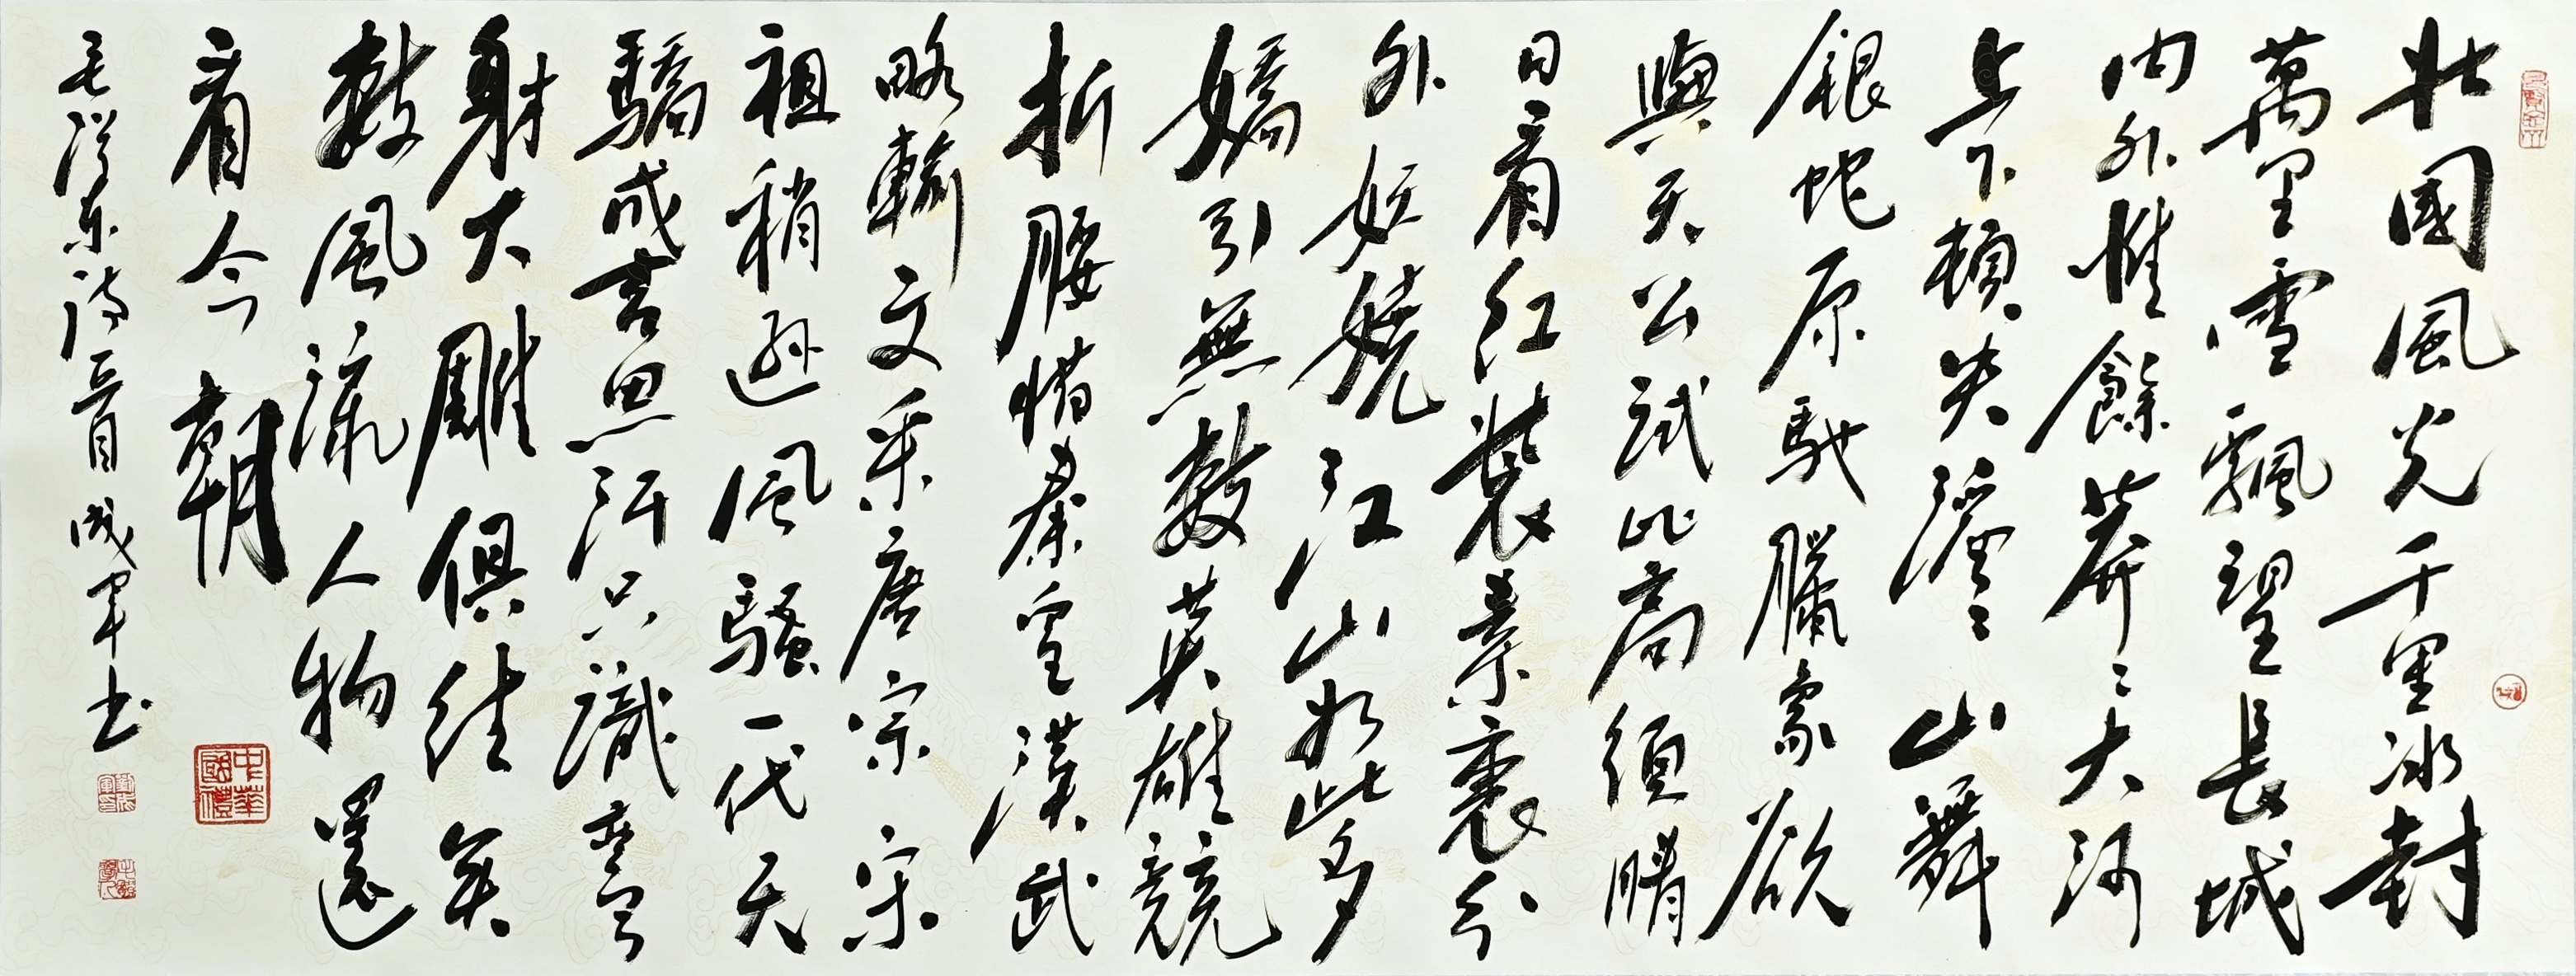 北國風光千里冰封
萬里雪飄望長城
内外惟餘莽々大河
上下頓失滔々山舞
銀蛇原馳臘象欲
與天公試比高須晴
日看紅裝素裹分
外妖嬈江山如此多
嬌引無數英雄競
折腰惜秦皇漢武
略輸文采唐宗宋
祖稍遜風騷一代天
驕成吉思汗只識彎弓
射大雕俱往矣
數風流人物還
看今朝
毛澤东詩一首 成军书
中華國禮